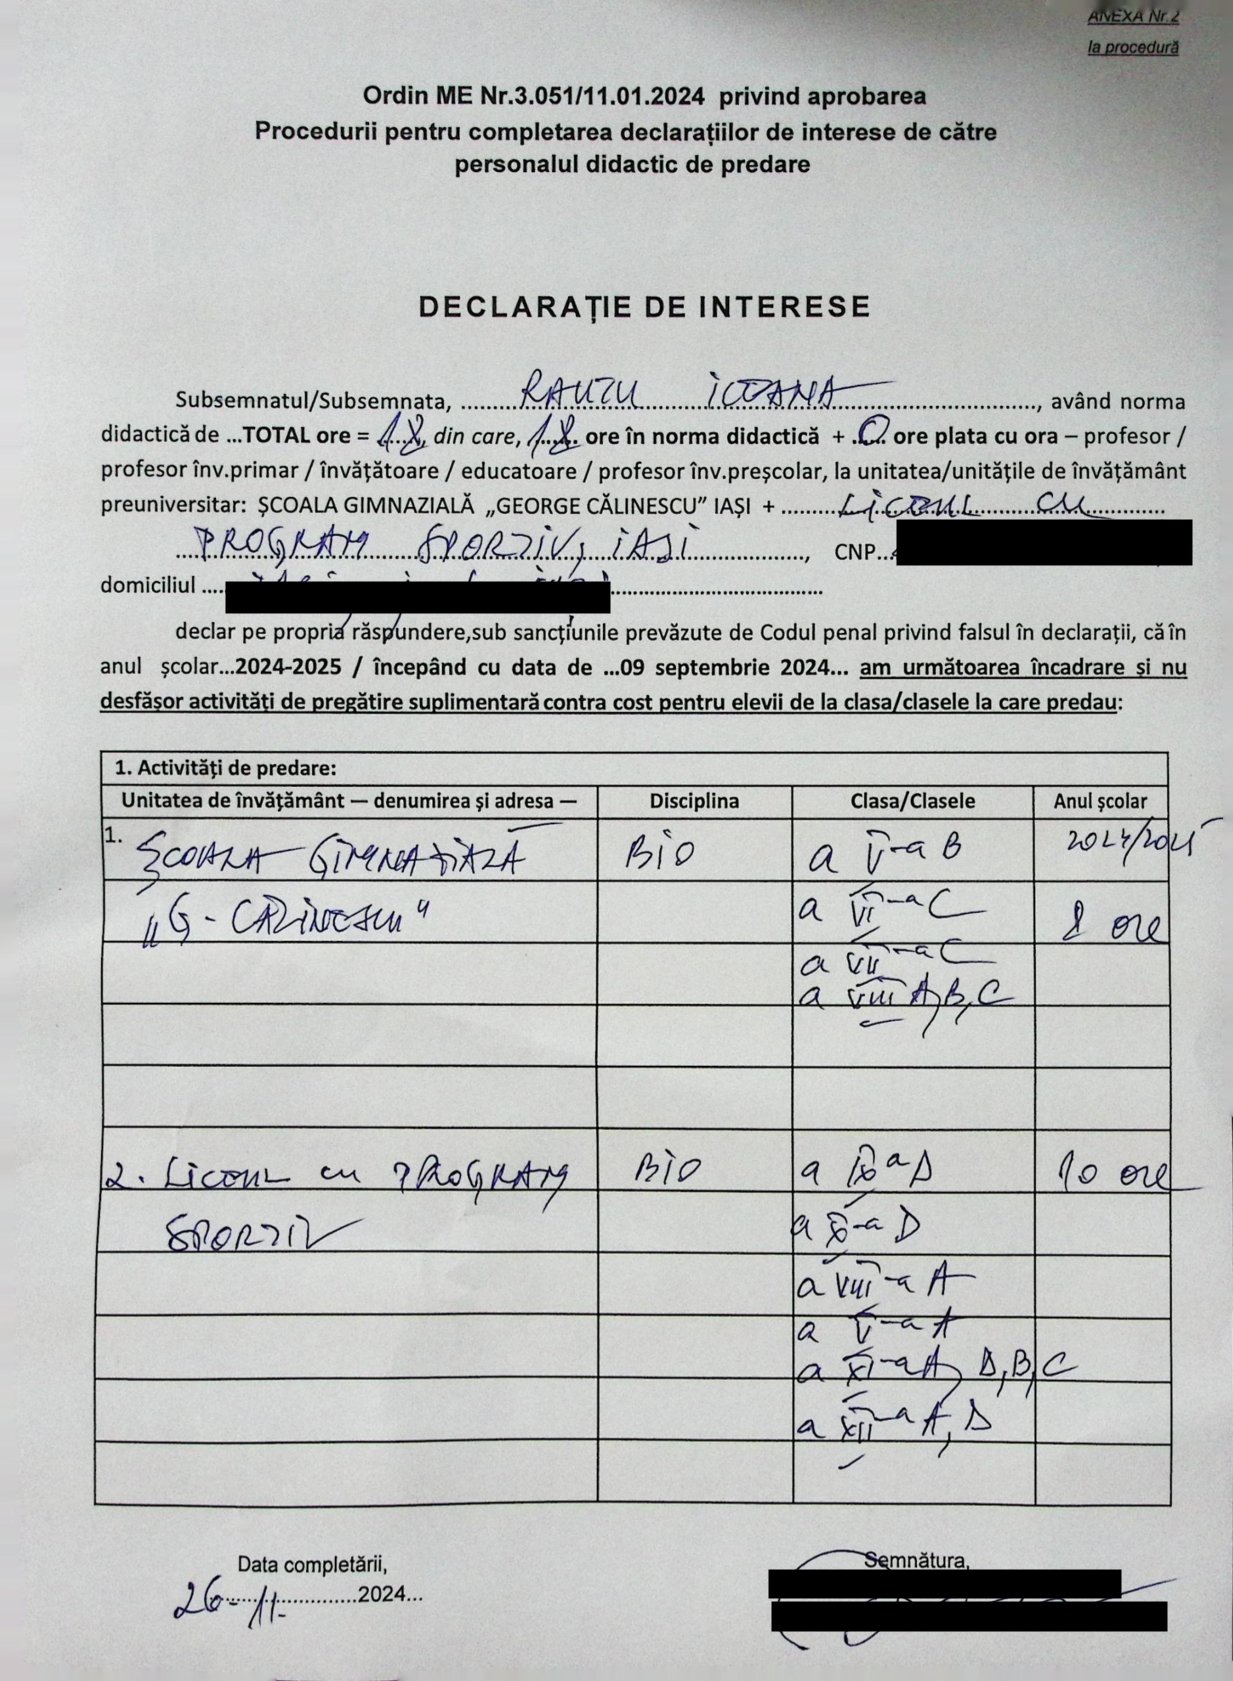 ANEXA Nr.2
la procedură
Ordin ME Nr.3.051/11.01.2024 privind aprobarea
Procedurii pentru completarea declarațiilor de interese de către
personalul didactic de predare
DECLARAȚIE DE INTERESE
Subsemnatul/Subsemnata, ..... ....., având norma
didactică de ...TOTAL ore = 18, din care, 18 ore în norma didactică + 0 ore plata cu ora – profesor /
profesor înv.primar / învățătoare / educatoare / profesor înv.preșcolar, la unitatea/unitățile de învățământ
preuniversitar: ȘCOALA GIMNAZIALĂ „GEORGE CĂLINESCU” IAȘI + ..... LICEUL CU
PROGRAM SPORTIV, IAȘI ....., CNP...
domiciliul ....
declar pe propria răspundere,sub sancțiunile prevăzute de Codul penal privind falsul în declarații, că în
anul școlar...2024-2025 / începând cu data de ...09 septembrie 2024... am următoarea încadrare și nu
desfășor activități de pregătire suplimentară contra cost pentru elevii de la clasa/clasele la care predau:
1. Activități de predare:
Unitatea de învățământ — denumirea și adresa — Disciplina Clasa/Clasele Anul școlar
1. ȘCOALA GIMNAZIALĂ BIO a V-a B 2024/2025
„G. CĂLINESCU" a VI-a C 8 ore
a VII-a C
a VIII A, B, C
2. LICEUL cu PROGRAM BIO a IX a D 10 ore
SPORTIV a X-a D
a VIII-a A
a V-a A
a XI-a A, D, B, C
a XII-a A, D
Data completării, Semnătura,
26-11- ...2024...